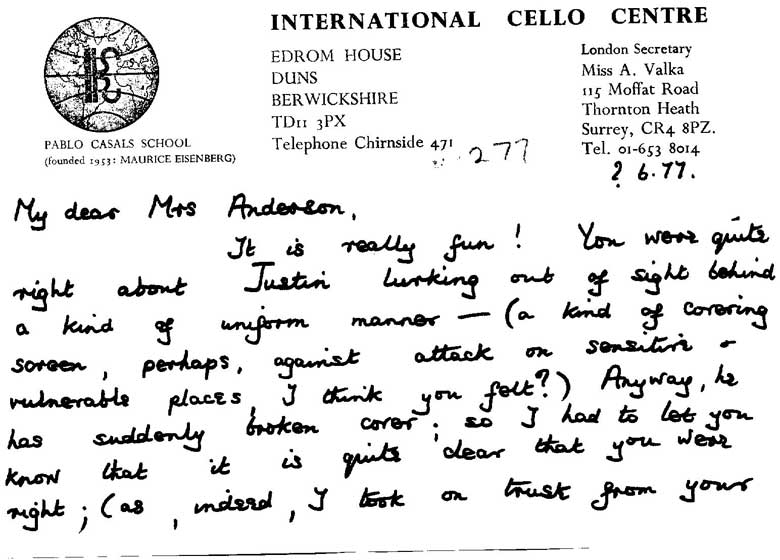 INTERNATIONAL CELLO CENTRE
EDROM HOUSE
DUNS
BERWICKSHIRE
TD11 3PX
Telephone Chirnside 471
277
London Secretary
Miss A. Valka
115 Moffat Road
Thornton Heath
Surrey, CR4 8PZ.
Tel. 01-653 8014
? 6.77.
PABLO CASALS SCHOOL
(founded 1953: MAURICE EISENBERG)
My dear Mrs Anderson,
It is really fun! You were quite
right about Justin lurking out of sight behind
a kind of uniform manner — (a kind of covering
screen, perhaps, against attack on sensitive &
vulnerable places, I think you felt?) Anyway, he
has suddenly broken cover; so I had to let you
know that it is quite clear that you were
right; (as, indeed, I took on trust from your